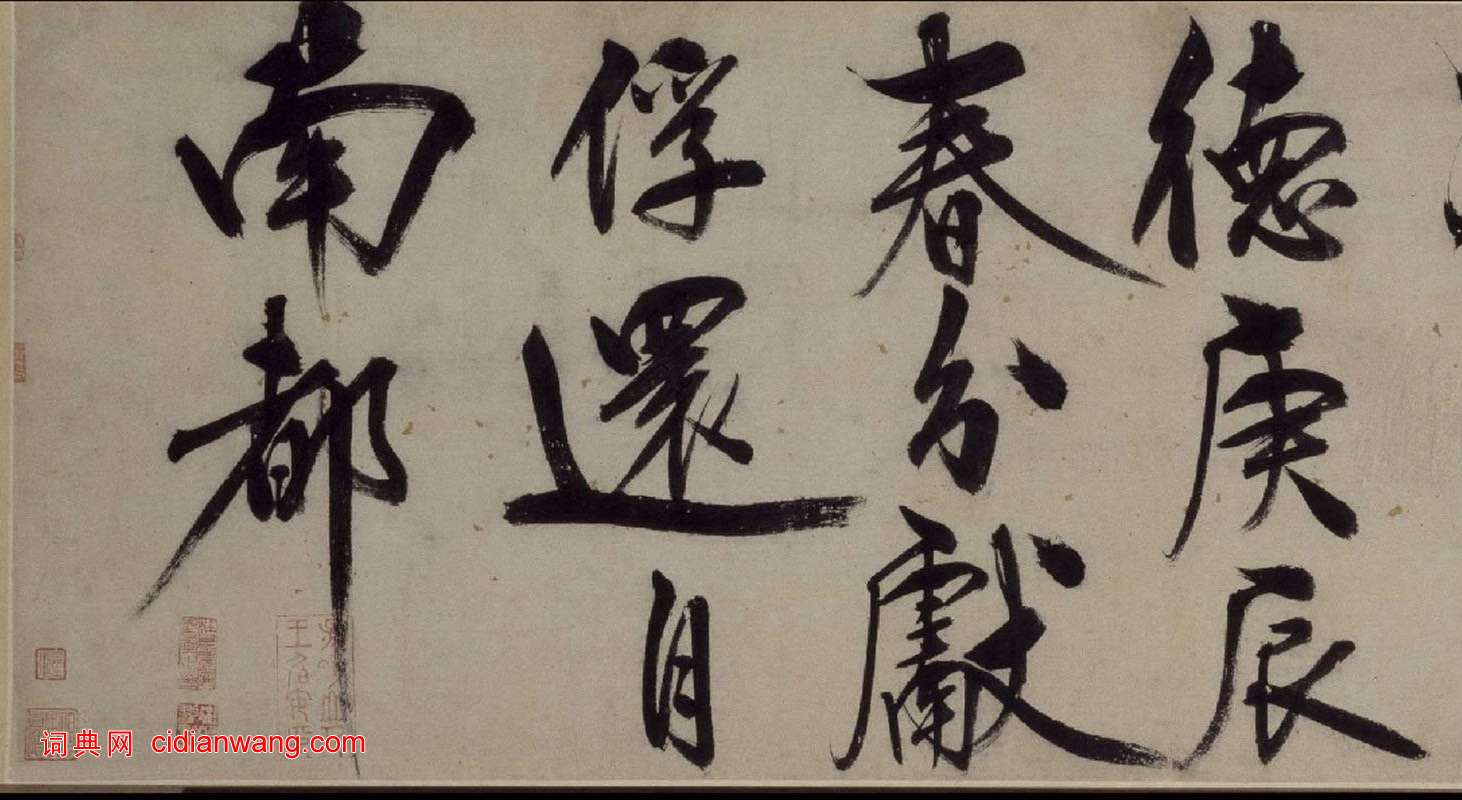 德庚辰
春分獻
俘還自
南都
词典网 cidianwang.com